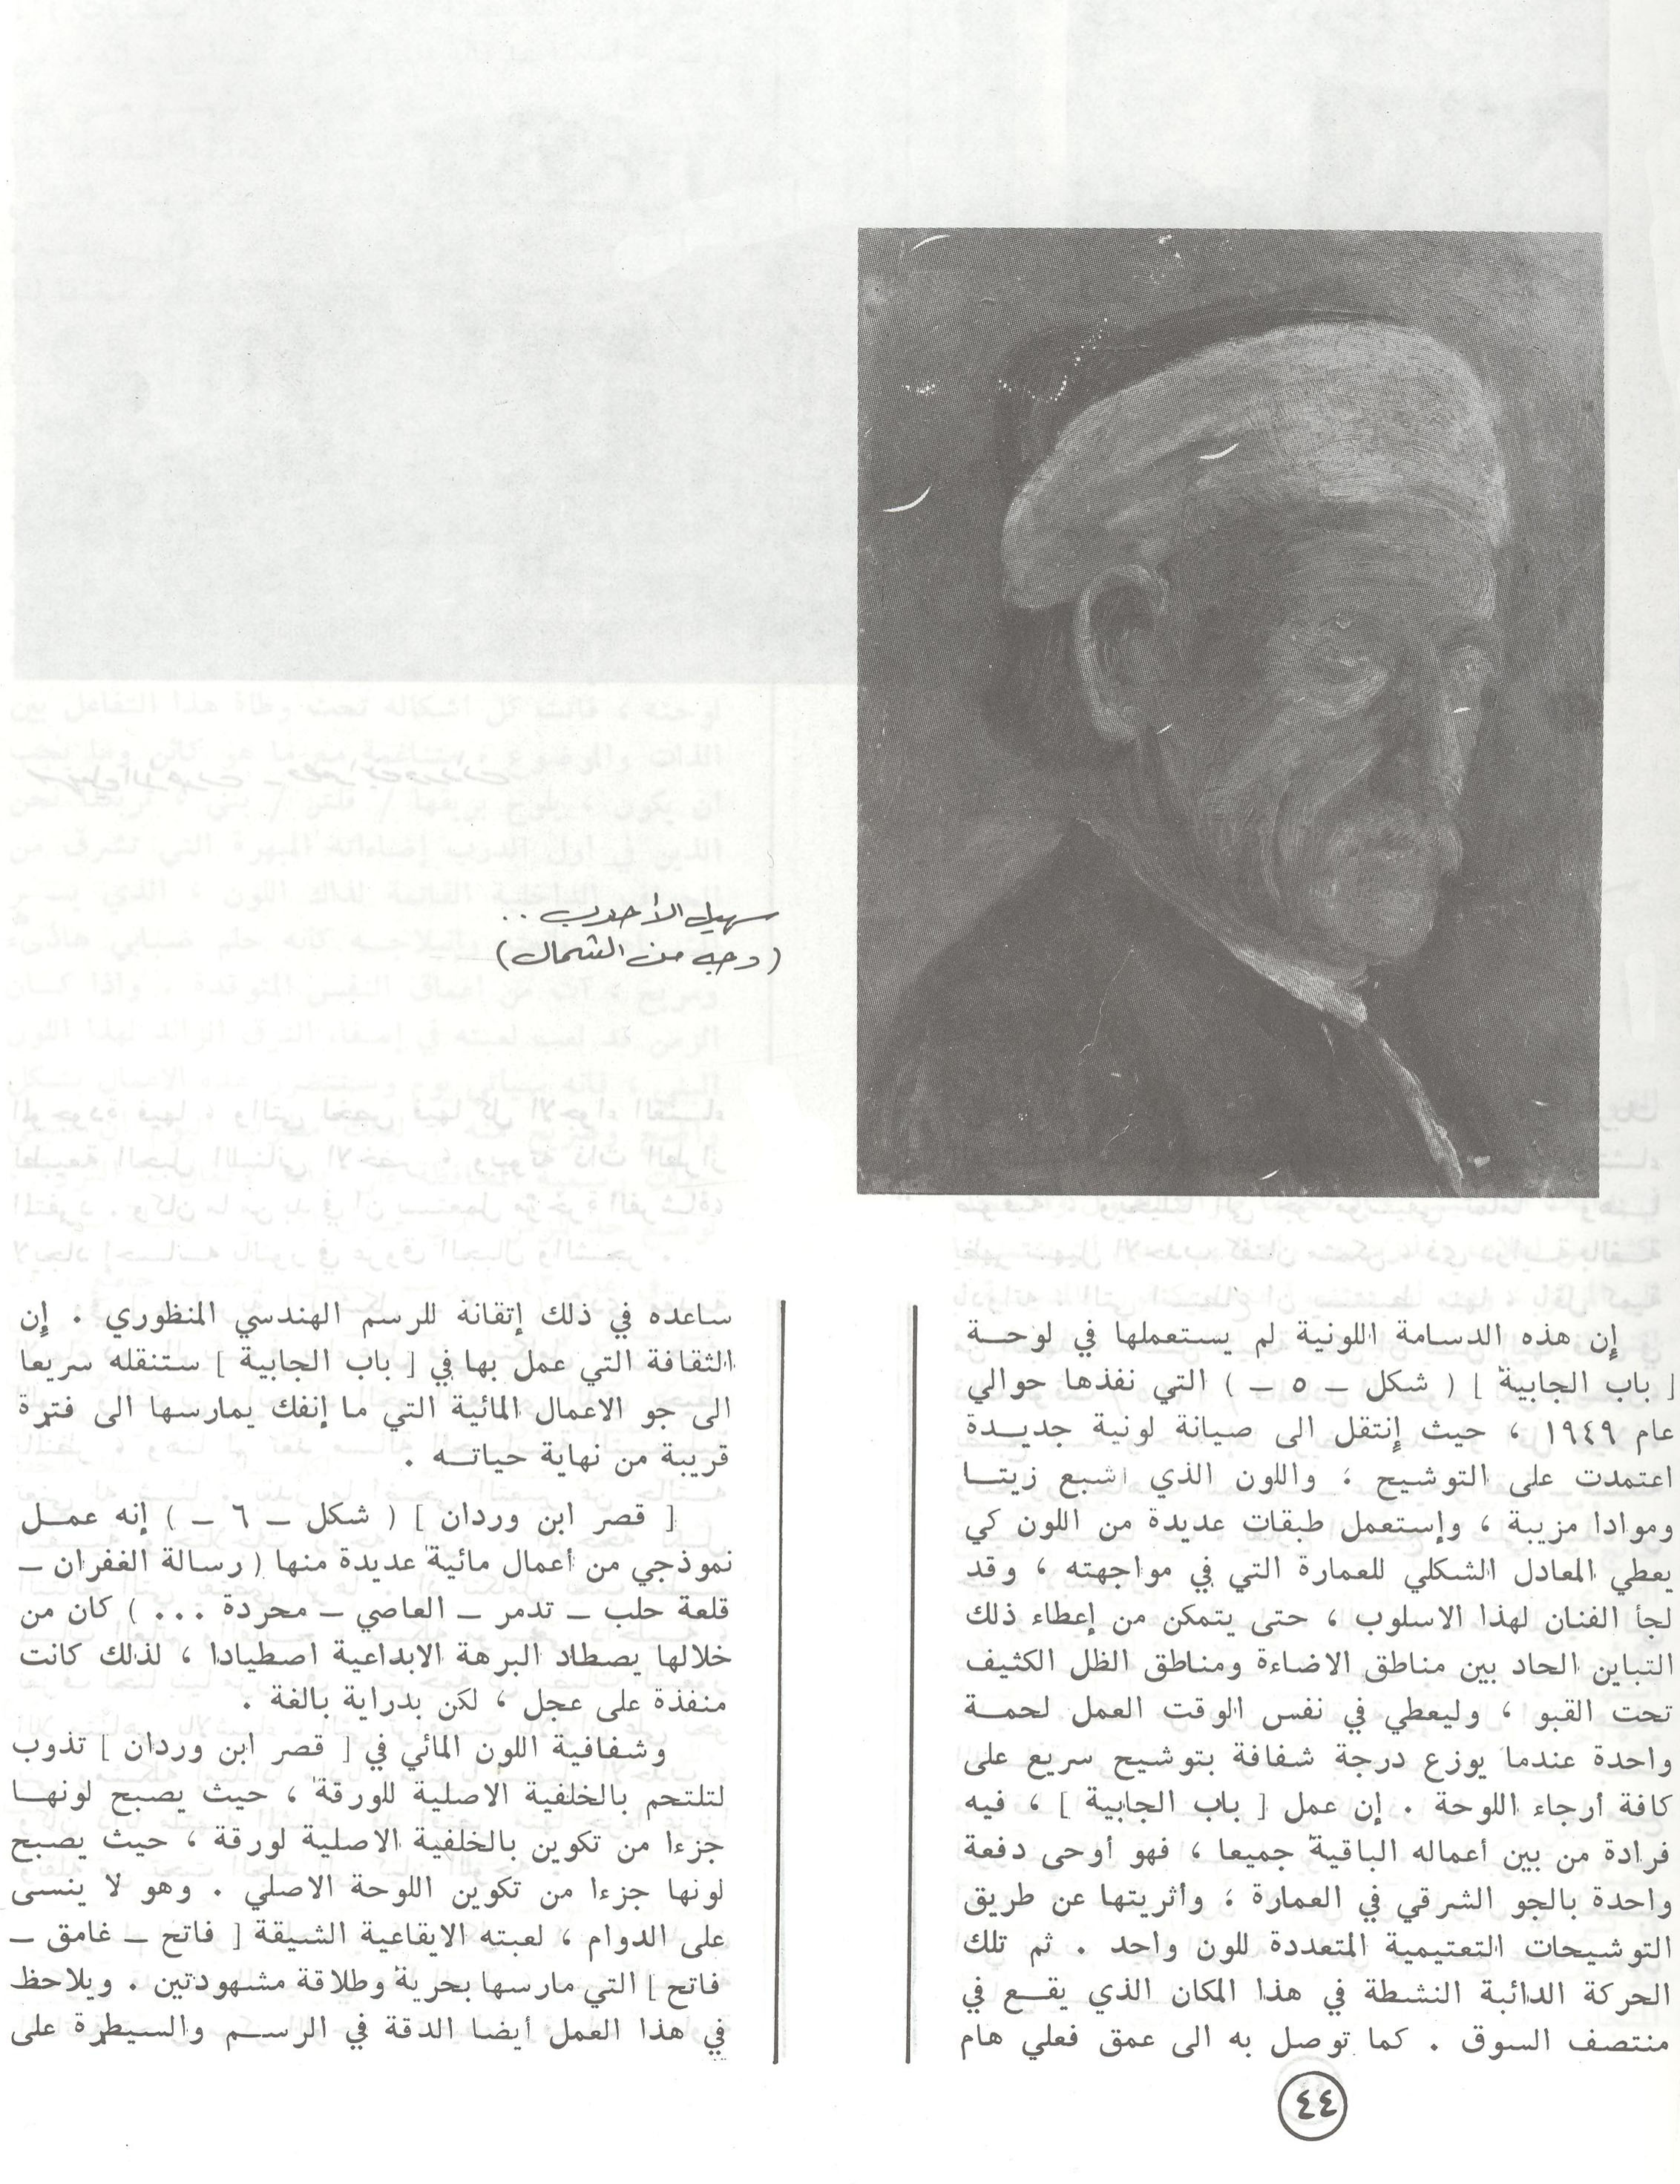 سهيل الأحدب ..
(وجه من الشمال)
إن هذه الدسامة اللونية لم يستعملها في لوحـــة
[ باب الجابية ] ( شكل ــ ٥ ــ ) التي نفذها حوالي
عام ١٩٤٩ ، حيث إنتقل الى صيانة لونية جديـــدة
اعتمدت على التوشيح ؛ واللون الذي اشبع زيتـــا
وموادا مزيبة ، وإستعمل طبقات عديدة من اللون كي
يعطي المعادل الشكلي للعمارة التي في مواجهته ، وقد
لجأ الفنان لهذا الاسلوب ، حتى يتمكن من إعطاء ذلك
التباين الحاد بين مناطق الاضاءة ومناطق الظل الكثيف
تحت القبو ، وليعطي في نفس الوقت العمل لحمـــة
واحدة عندما يوزع درجة شفافة بتوشيح سريع على
كافة أرجاء اللوحة . إن عمل [ باب الجابية ] ، فيه
فرادة من بين أعماله الباقية جميعا ، فهو أوحى دفعة
واحدة بالجو الشرقي في العمارة ؛ وأثريتها عن طريق
التوشيحات التعتيمية المتعددة للون واحد . ثم تلك
الحركة الدائبة النشطة في هذا المكان الذي يقـــع في
منتصف السوق . كما توصل به الى عمق فعلي هام
ساعده في ذلك إتقانة للرسم الهندسي المنظوري . إن
الثقافة التي عمل بها في [ باب الجابية ] ستنقله سريعا
الى جو الاعمال المائية التي ما إنفك يمارسها الى فترة
قريبة من نهاية حياتـــه .
[ قصر ابن وردان ] ( شكل ــ ٦ ــ ) إنه عمـــل
نموذجي من أعمال مائية عديدة منها ( رسالة الغفران ــ
قلعة حلب ــ تدمر ــ العاصي ــ مجردة ... ) كان من
خلالها يصطاد البرهة الابداعية اصطيادا ، لذلك كانت
منفذة على عجل ، لكن بدراية بالغة .
وشفافية اللون المائي في [ قصر ابن وردان ] تذوب
لتلتحم بالخلفية الاصلية للورقة ، حيث يصبح لونهـــا
جزءا من تكوين بالخلفية الاصلية لورقة ، حيث يصبح
لونها جزءا من تكوين اللوحة الاصلي . وهو لا ينسى
على الدوام ، لعبته الايقاعية الشيقة [ فاتح ــ غامق ــ
فاتح ] التي مارسها بحرية وطلاقة مشهودتين . ويلاحظ
في هذا العمل أيضا الدقة في الرســـم والسيطرة على
٤٤